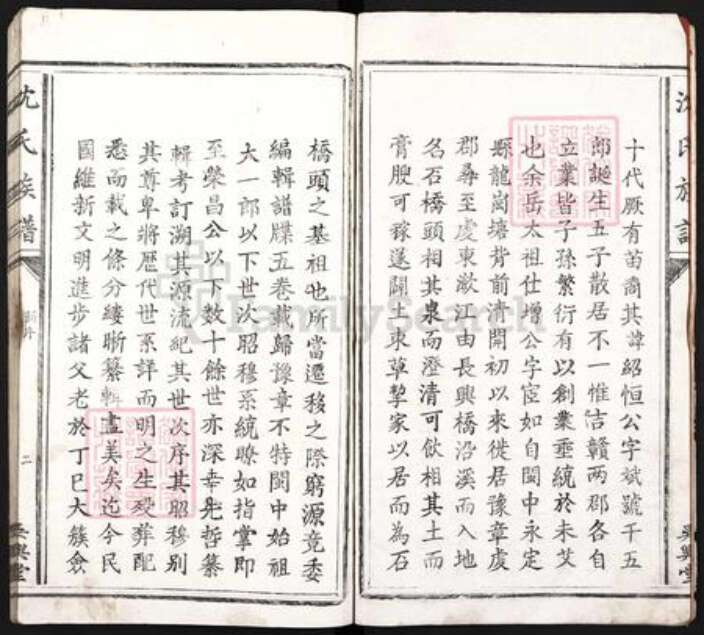 十代厥有苗裔其諱紹恒公字斌號千五
郎誕生五子散居不一惟吉贛两郡各自
立業皆子孫繁衍有以創業垂統於未艾
也余岳太祖仕增公字宦如自閩中永定
縣龍崗塘背前清開初以來徙居豫章虔
郡尋至虔東漵江由長興橋沿溪而入地
名石橋頭相其泉而澄清可飲相其土而
膏腴可稼遂闢土東草挈家以居而為石
橋頭之基祖也所當遷移之際窮源竟委
編輯譜牒五卷載歸豫章不特閩中始祖
大一郎以下世次昭穆系統瞭如指掌即
至榮昌公以下数十餘世亦深幸先哲纂
輯考訂溯其源流紀其世次序其昭穆別
其尊卑將歷代世系詳而明之生殁葬配
悉而載之條分縷晰纂輯盡美矣迄今民
國維新文明進步諸父老於丁巳大簇僉
沈氏族譜
新序
二
吳興堂
FamilySearch